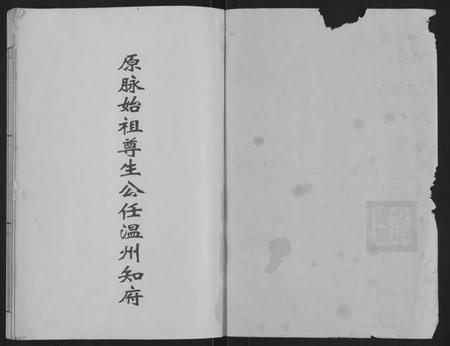 原脉始祖尊生公任温州知府